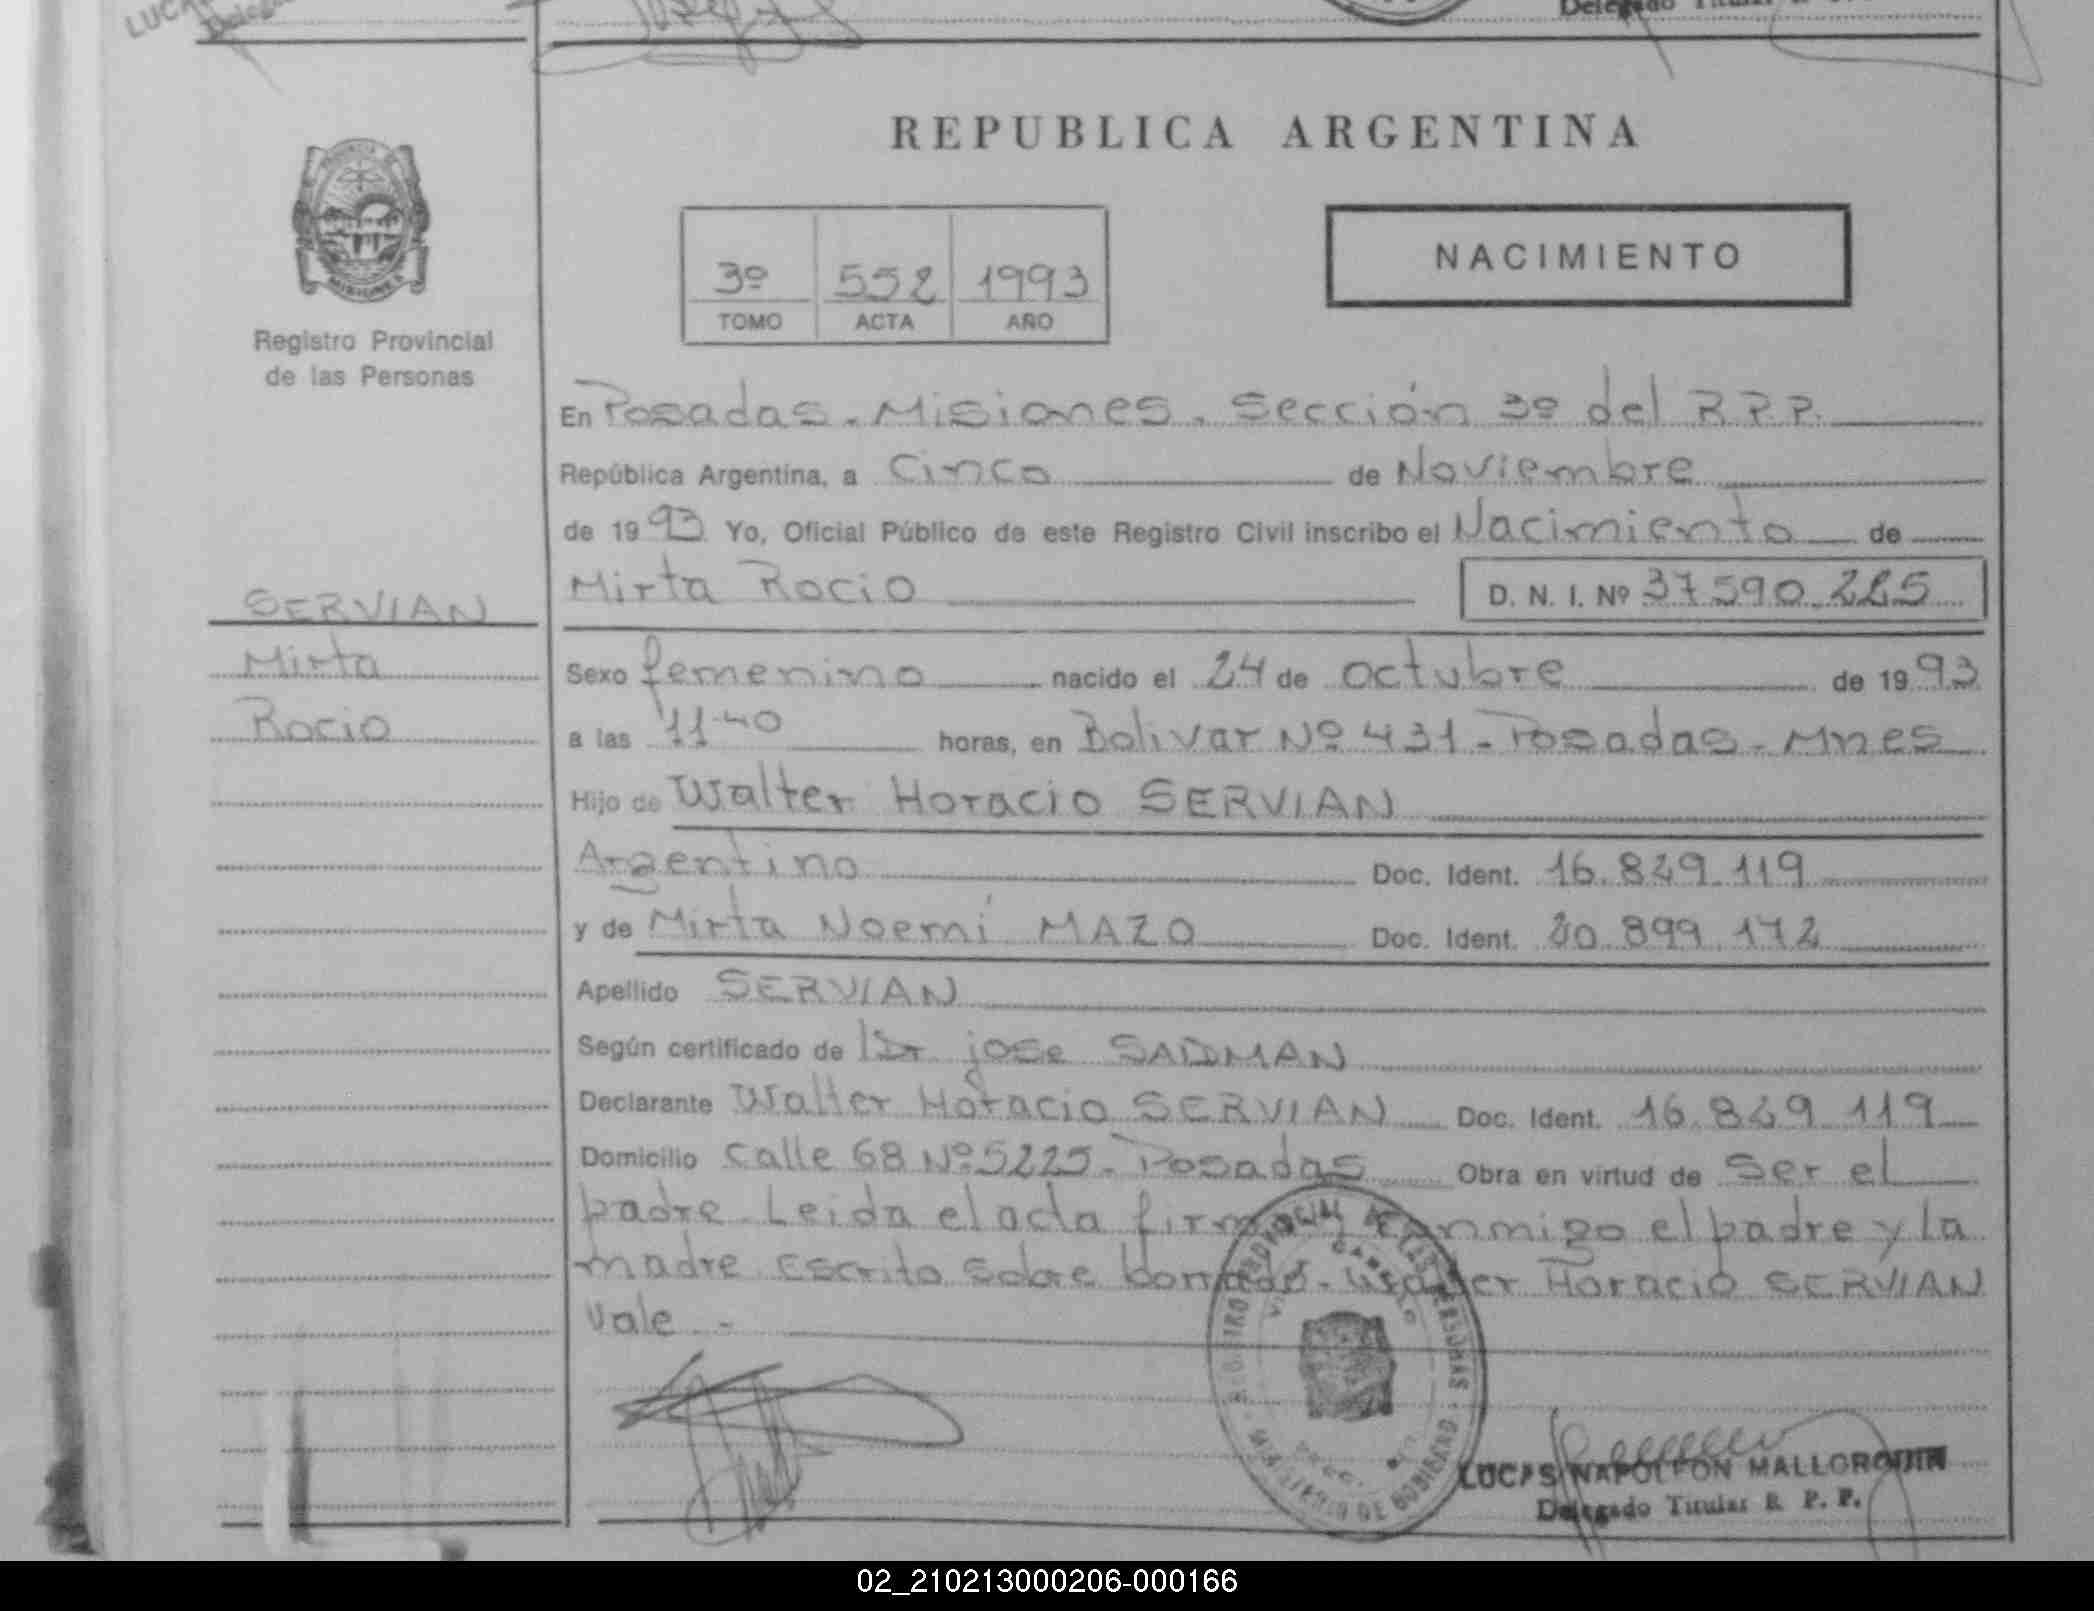 LUCAS
Delegado
Delegado Titular R
REPUBLICA ARGENTINA
PROVINCIA DE
MISIONES
3º 552 1993
TOMO ACTA AÑO
NACIMIENTO
Registro Provincial
de las Personas
En Posadas - Misiones - Sección 3º del R.P.P.
República Argentina, a Cinco de Noviembre
de 1993 Yo, Oficial Público de este Registro Civil inscribo el Nacimiento de
Mirta Rocio D. N. I. Nº 37.590.225
SERVIAN
Mirta
Rocio
Sexo femenino nacido el 24 de octubre de 1993
a las 11-40 horas, en Bolivar Nº 431 - Posadas - Mnes
Hijo de Walter Horacio SERVIAN
Argentino Doc. Ident. 16.849.119
y de Mirta Noemí MAZO Doc. Ident. 20.899.172
Apellido SERVIAN
Según certificado de Dr. jose SADMAN
Declarante Walter Horacio SERVIAN Doc. Ident. 16.849.119
Domicilio Calle 68 Nº 5225 - Posadas Obra en virtud de Ser el
padre - Leida el acta firman conmigo el padre y la
madre escrito sobre borrado - Walter Horacio SERVIAN
Vale -
REGISTRO PROVINCIAL DE LAS PERSONAS
MINISTERIO DE GOBIERNO
LUCAS NAPOLEON MALLORQUIN
Delegado Titular R. P. P.
02_210213000206-000166